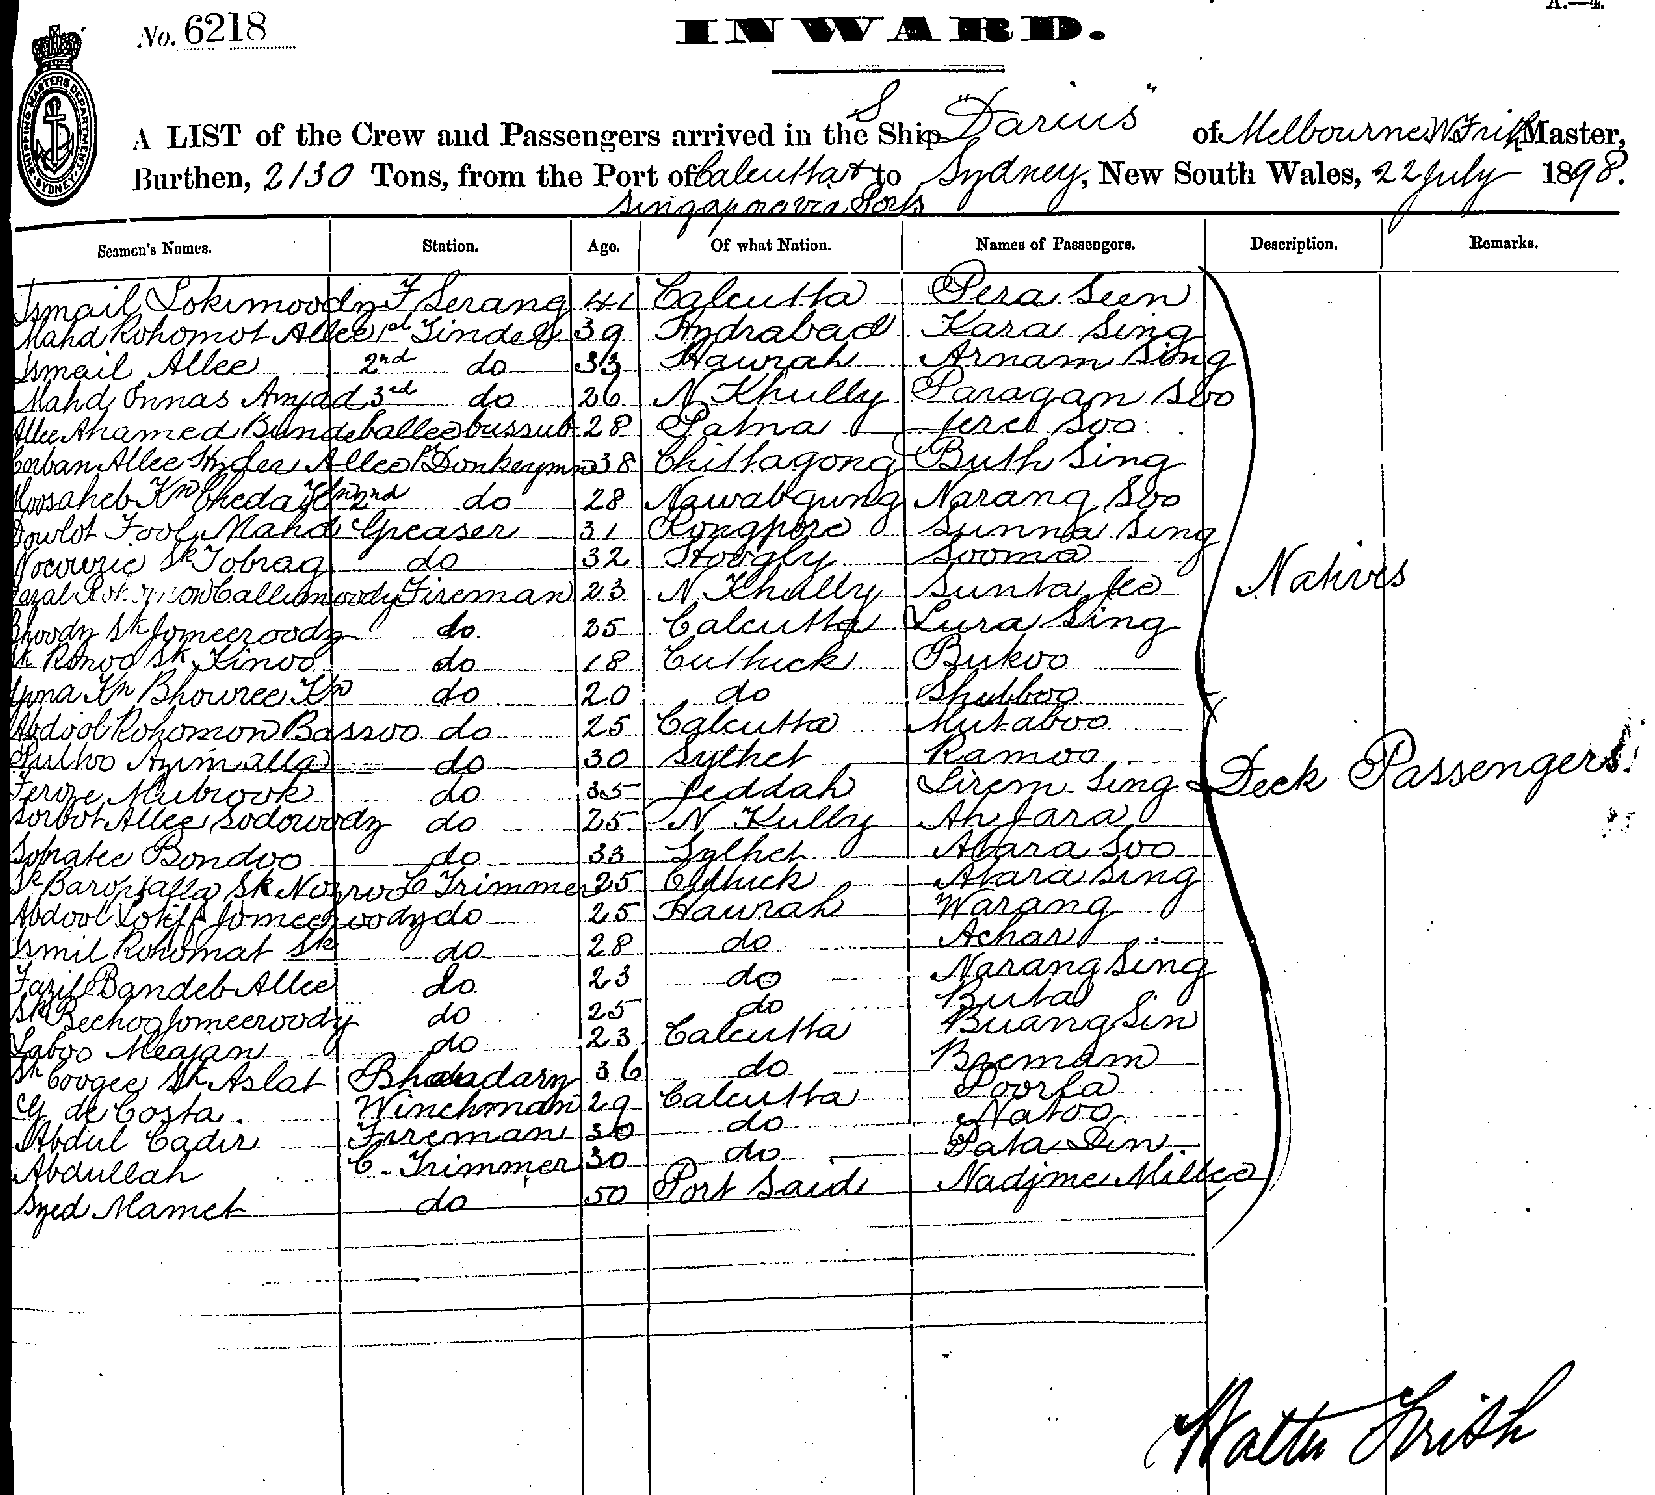 A.—4.
No. 6218
INWARD.
A LIST of the Crew and Passengers arrived in the S Ship "Darius" of Melbourne W Frith Master,
Burthen, 2130 Tons, from the Port of Calcutta & to Sydney, New South Wales, 22 July 1898.
Singapore via Ports
Seamen's Names. Station. Age. Of what Nation. Names of Passengers. Description. Remarks.
Ismail Lokimoody F Serang 41 Calcutta Pera Seen
Mahd Rohomot Allee 1st Tindel 39 Hydrabad Kara Sing
Ismail Allee 2nd do 33 Haurah Arnam Sing
Mahd Onnas Amjad 3rd do 26 N Khully Paragam Soo
Allee Ahamed Bundeballee Cussub 28 Patna Jerct Soo
Corban Allee Hyder Allee 1st Donkeyman 38 Chittagong Buth Sing
Moosaheb Kn Cheda Kn 2nd do 28 Nawabgung Narang Soo
Dowlot Fool Mahd Greaser 31 Rongpore Sunna Sing
Sk Tobrag do 32 Hoogly Sooma
Callimoody Fireman 23 N Khully Sunta
Bhoody Sk Jomeeroody do 25 Calcutta Lura Sing
Sk Ronoo Sk Kinoo do 18 Cuthick Bukoo
Kn Bhouree Kn do 20 do Shubboo
Abdool Rohomon Bassoo do 25 Calcutta Mutaboo
Azimalla do 30 Sylhet Ramoo
Feroze Mubrook do 35 Jeddah Sirem Sing
Sorbot Allee Sodowody do 25 N Kully Ah Jara
Sobratee Bondoo do 33 Sylhet Abara Soo
Sk Baropjalla Sk Nozroo C Trimmer 25 Cuthick Atara Sing
Abdool Lotiff Jomeeroody do 25 Haurah Warang
Ismil Rohomat Sk do 28 do Achar
Fazil Bandeb Allee do 23 do Narang Sing
Sk Bechoo Jomeeroody do 25 do Buta
Laboo Meajan do 23 Calcutta Buang Sin
Sk Coogee Sk Aslat Bhandary 36 do Bremam
de Costa. Winchman 29 Calcutta Poorfa
Abdul Cadir Fireman 30 do Natoo
Abdullah C. Trimmer 30 do Pata Din
Syed Mamet do 50 Port Said Nadjme Miltco
Natives
Deck Passengers
Walter Frith